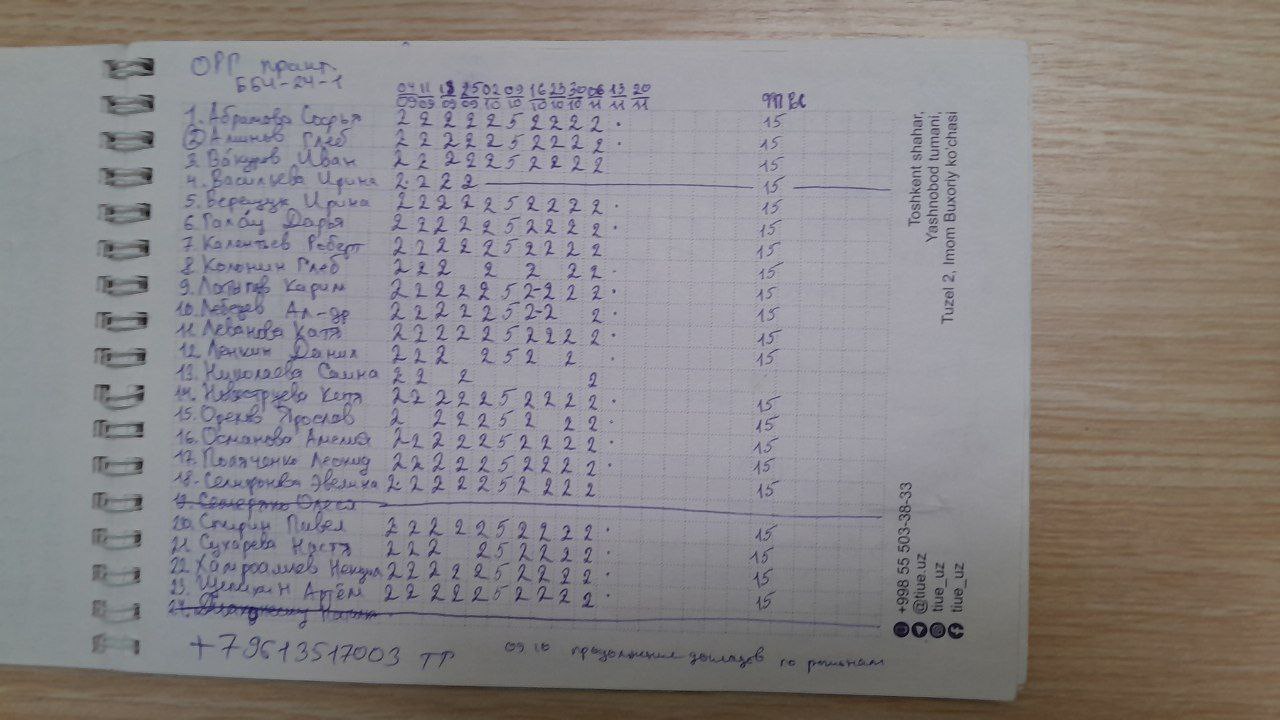 ОРР практ.
ББИ-24-1
04 11 18 25 02 09 16 23 30 06 13 20
09 09 09 09 10 10 10 10 10 11 11 11
1. Абрамова Софья 2 2 2 2 2 5 2 2 2 2 · 15
2 Глеб 2 2 2 2 2 5 2 2 2 2 · 15
3. Иван 2 2 2 2 2 5 2 2 2 2 15
4. Васильева Ирина 2 2 2 2 15
5. Верещук Ирина 2 2 2 2 2 5 2 2 2 2 · 15
6. Дарья 2 2 2 2 2 5 2 2 2 2 · 15
7. Калентьев Роберт 2 2 2 2 2 5 2 2 2 2 15
8. Колонин Глеб 2 2 2 2 2 2 2 · 15
9. Латыпов Карим 2 2 2 2 2 5 2-2 2 2 · 15
10. Лебедев Ал-др 2 2 2 2 2 5 2-2 2 · 15
11. Леванова Катя 2 2 2 2 2 5 2 2 2 2 · 15
12. Ленкин Данил 2 2 2 2 5 2 2 · 15
13. Николаева Саина 2 2 2 2
14. Катя 2 2 2 2 2 5 2 2 2 2 · 15
15. Ярослав 2 2 2 2 5 2 2 2 · 15
16. Османова 2 2 2 2 2 5 2 2 2 2 · 15
17. Поляченко Леонид 2 2 2 2 2 5 2 2 2 2 · 15
18. Эвелина 2 2 2 2 2 5 2 2 2 2 15
19. Олеся
20. Спирин Павел 2 2 2 2 2 5 2 2 2 2 · 15
21. Сухарева Настя 2 2 2 2 5 2 2 2 2 · 15
22. 2 2 2 2 2 5 2 2 2 2 · 15
23. Артём 2 2 2 2 2 5 2 2 2 2 · 15
24.
+79613517003 ТР
09 10 продолжение докладов по регионам
Toshkent shahar,
Yashnobod tumani,
Tuzel 2, Imom Buxoriy ko'chasi
+998 55 503-38-33
@tiue.uz
tiue_uz
tiue_uz